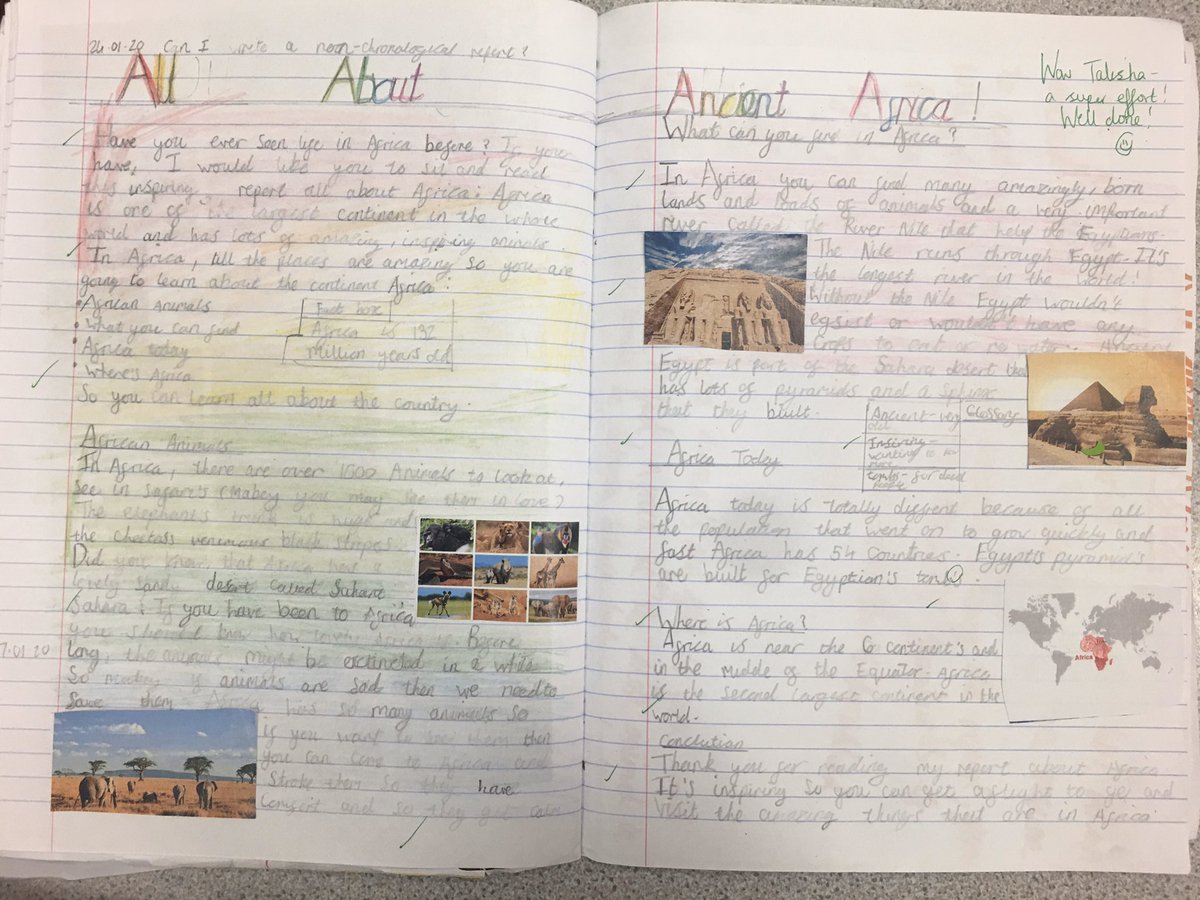 24.01.20 Can I write a non-chronological report?
All About
Have you ever seen life in Africa before? If you
have, I would like you to sit and read
this inspiring, report all about Africa. Africa
is one of the largest continent in the whole
world and has lots of amazing, inspiring animals.
In Africa, all the places are amazing so you are
going to learn about the continent Africa:
African animals
what you can find
Africa today
Where's Africa
So you can learn all about the country.
Fact box
Africa is 192
million years old
African Animals
In Africa, there are over 1000 Animals to look at,
see in Safari's (Mabey you may see them in love?
The elephants trunk is huge and
the cheetass venimous black stripes.
Did you know that Africa has a
lovely sandy desert called Sahara
Sahara? If you have been to Africa
you should know how lovely Africa is. Before
long, the animals might be exctincted in a while
So mabey if animals are sad then we need to
save them. Africa has so many animals so
if you want to see them then
you can come to Africa and
stroke them so they have
comfort and so they get calm
7.01.20
Ancient Africa!
Wow Talisha -
a super effort!
Well done!
What can you find in Africa?
In Africa you can find many amazingly, born
lands and loads of animals and a very important
river called the River Nile that help the Egyptians.
The Nile runs through Egypt. It's
the longest river in the world!
Without the Nile Egypt wouldn't
egsist or wouldn't have any
crops to eat or no water. Ancient
Egypt is part of the Sahara desert that
has lots of pyramids and a Sphinx
that they built.
Glossary
Ancient - very
old
Inspiring -
wanting to
tombs - for dead
people
Africa Today
Africa today is totally diffrent because of all
the population that went on to grow quickly and
fast Africa has 54 countries. Egypts pyramid's
are built for Egyptian's tomb
Where is Africa?
Africa is near the 6 continent's and
in the middle of the Equator. Africa
is the second largest continent in the
world.
Africa
Conclution
Thank you for reading my report about Africa
It's inspiring so you can get a flight to go and
visit the amazing things there are in Africa